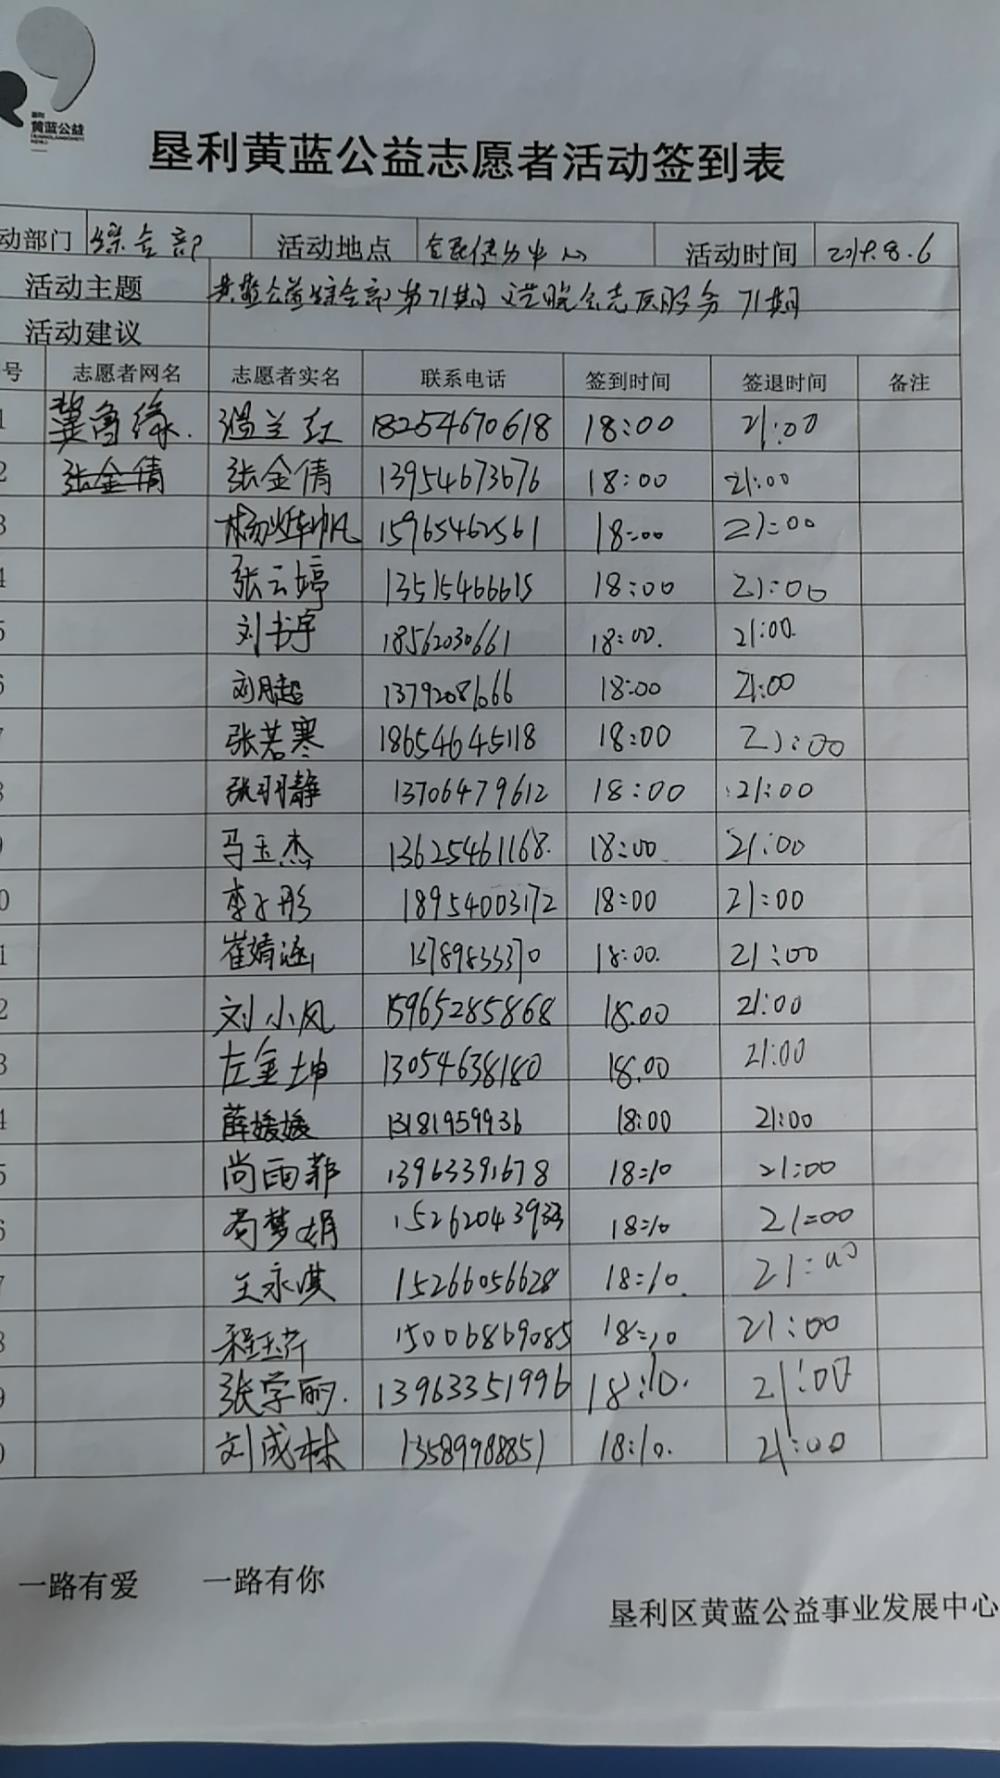 黄蓝公益
垦利黄蓝公益志愿者活动签到表
动部门 综合部 活动地点 全民健身中心 活动时间 2019.8.6
活动主题 黄蓝公益综合部第71期文艺晚会志愿服务 71期
活动建议
号 志愿者网名 志愿者实名 联系电话 签到时间 签退时间 备注
1 温兰红 18254670618 18:00 21:00
2 张金倩 张金倩 13954673676 18:00 21:00
3 15965462561 18:00 21:00
4 张云婷 13515466615 18:00 21:00
5 刘书宇 18562030661 18:00. 21:00.
6 刘月超 18:00 21:00
7 张若寒 18654645118 18:00 21:00
8 张羽静 13706479612 18:00 21:00
9 马玉杰 13625461168. 18:00 21:00
0 李子彤 18954003172 18:00 21:00
1 崔婧涵 18:00. 21:00
2 刘小风 15965285868 18.00 21:00
3 左金坤 13054638180 18.00 21:00
4 薛媛媛 13181959936 18:00 21:00
5 尚雨菲 13963391678 18:10 21:00
6 苟梦娟 18:10 21:00
7 王永淇 15266056628 18:10. 21:00
8 程玉芹 15006869085 18:10 21:00
9 张学丽. 13963351996 18:10. 21:00
0 刘成林 13589988851 18:10. 21:00
一路有爱 一路有你
垦利区黄蓝公益事业发展中心